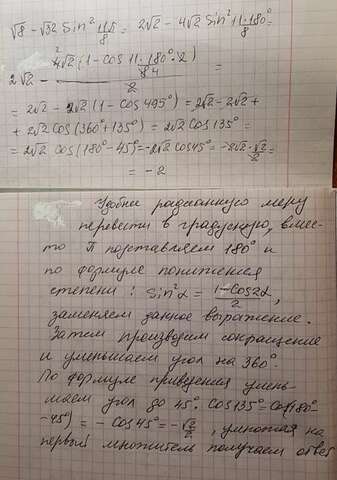 √8 - √32 Sin² 11π/8 = 2√2 - 4√2 Sin² 11·180°/8 =
2√2 - 4√2 (1 - Cos 11·180°·2/84)/2 =
= 2√2 - 2√2 (1 - Cos 495°) = 2√2 - 2√2 +
+ 2√2 Cos (360° + 135°) = 2√2 Cos 135° =
= 2√2 Cos (180° - 45°) = -2√2 Cos 45° = -2√2 · √2/2 =
= - 2
Удобнее радианную меру
перевести в градусную, вмес-
то π подставляем 180° и
по формуле понижения
степени: Sin²α = 1-Cos2α/2,
заменяем данное выражение.
Затем производим сокращение
и уменьшаем угол на 360°.
По формуле приведения умень-
шаем угол до 45°. Cos 135° = Cos(180° -
-45°) = - Cos 45° = - √2/2, умножая на
первый множитель получаем ответ